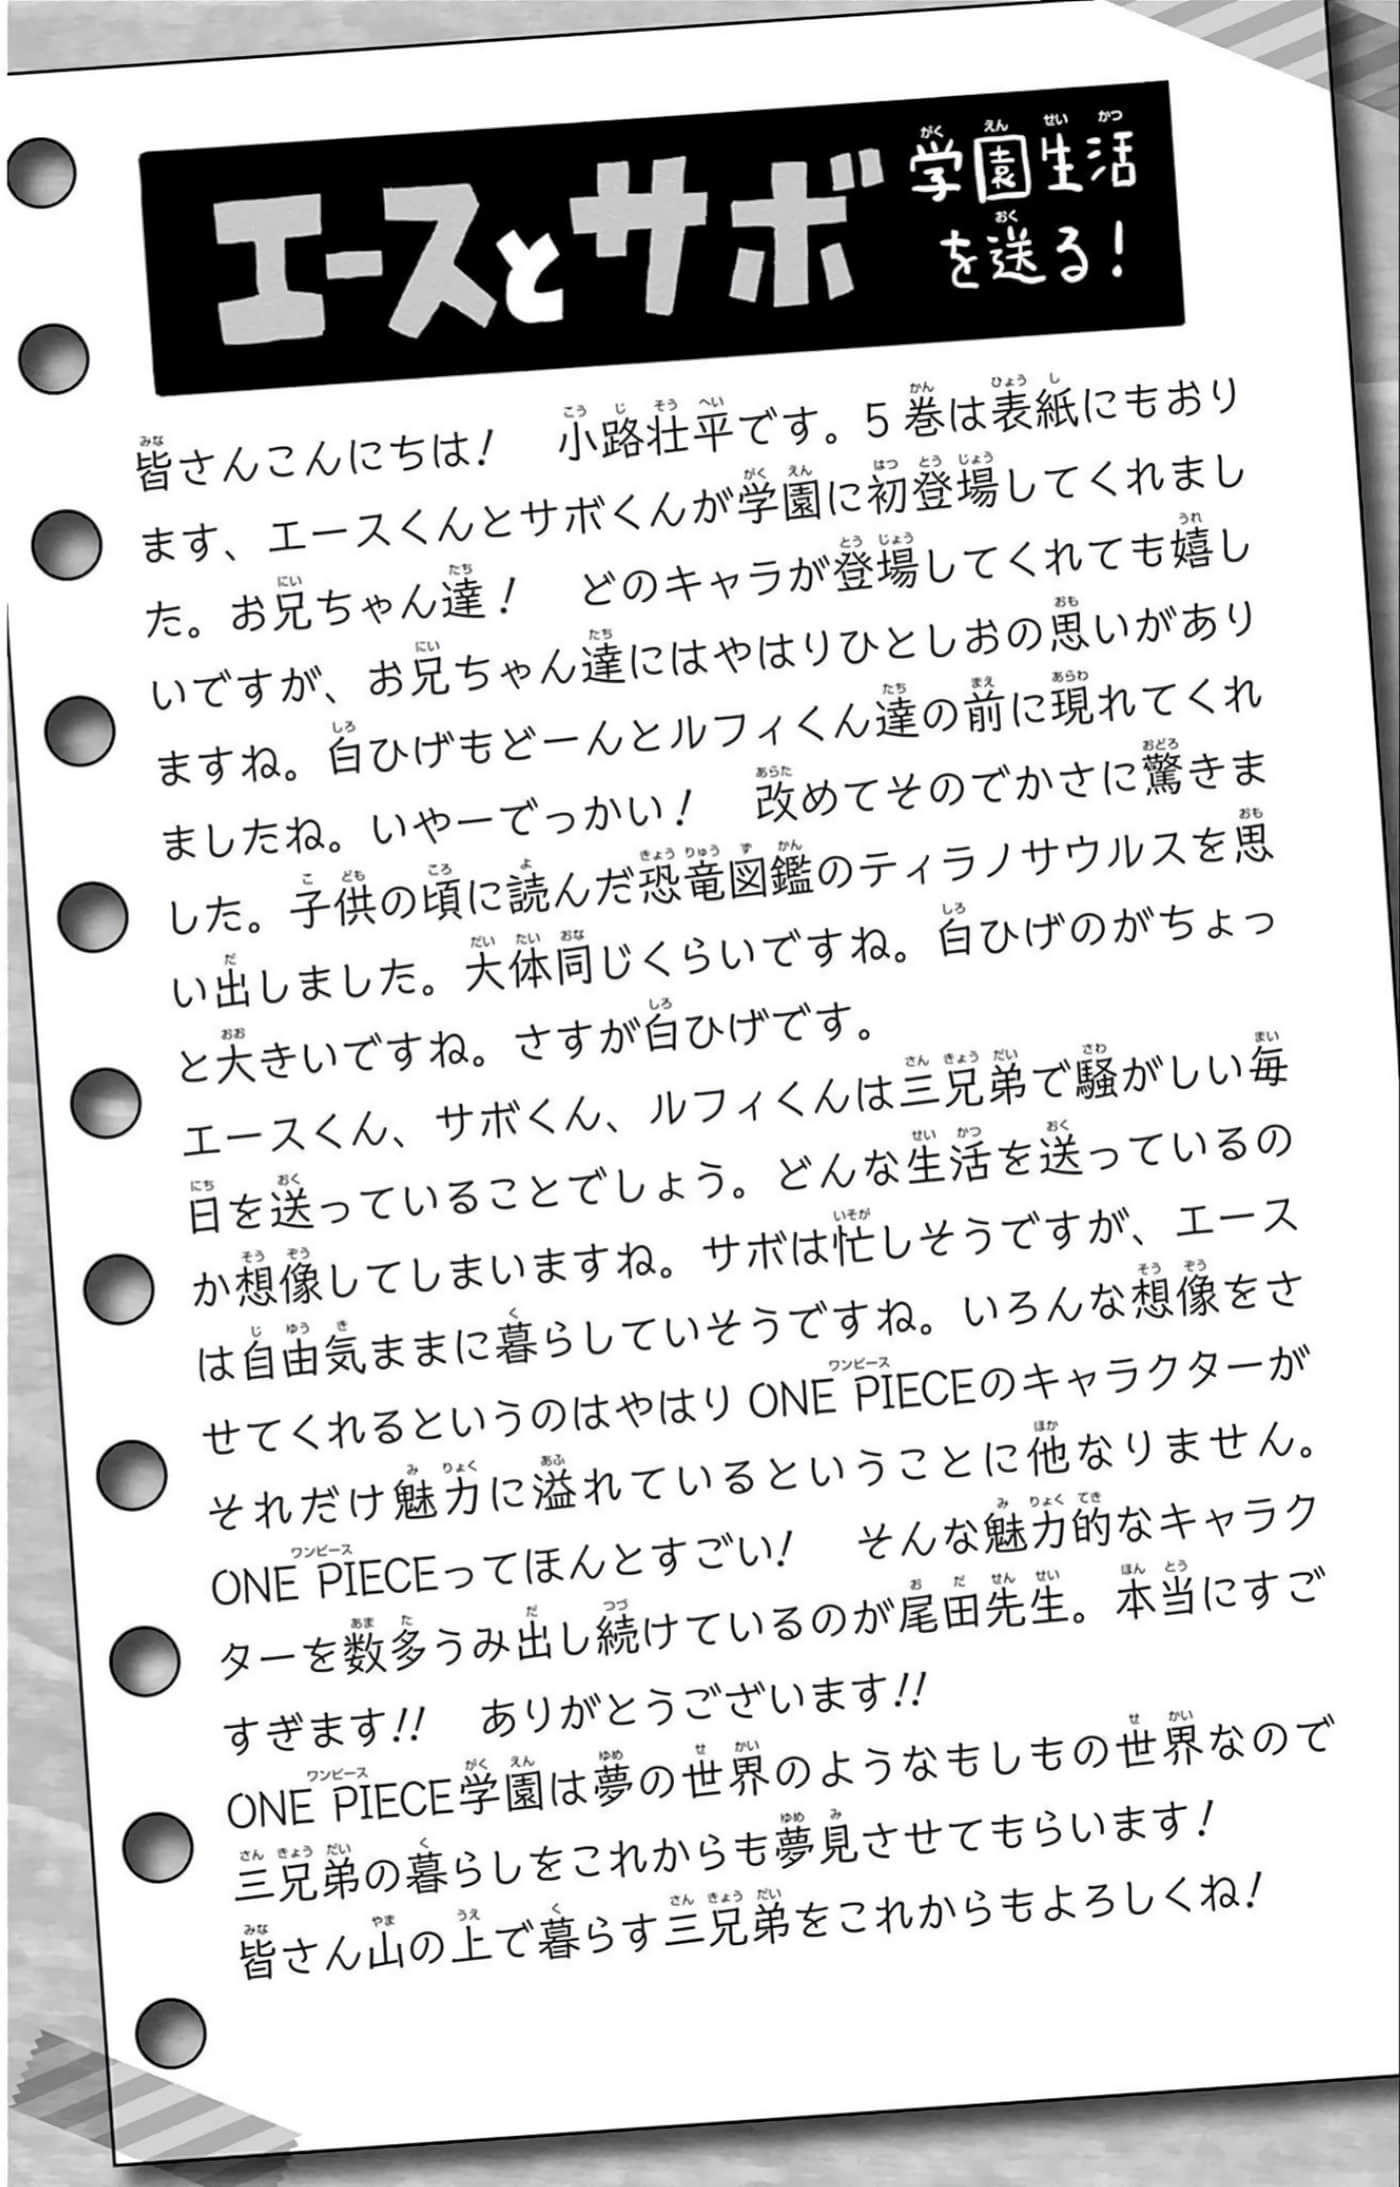 エースとサボ 学園生活
を送る!
皆さんこんにちは! 小路壮平です。5巻は表紙にもおり
ます、エースくんとサボくんが学園に初登場してくれまし
た。お兄ちゃん達! どのキャラが登場してくれても嬉し
いですが、お兄ちゃん達にはやはりひとしおの思いがあり
ますね。白ひげもどーんとルフィくん達の前に現れてくれ
ましたね。いやーでっかい! 改めてそのでかさに驚きま
した。子供の頃に読んだ恐竜図鑑のティラノサウルスを思
い出しました。大体同じくらいですね。白ひげのがちょっ
と大きいですね。さすが白ひげです。
エースくん、サボくん、ルフィくんは三兄弟で騒がしい毎
日を送っていることでしょう。どんな生活を送っているの
か想像してしまいますね。サボは忙しそうですが、エース
は自由気ままに暮らしていそうですね。いろんな想像をさ
せてくれるというのはやはりONE PIECEのキャラクターが
それだけ魅力に溢れているということに他なりません。
ONE PIECEってほんとすごい! そんな魅力的なキャラク
ターを数多うみ出し続けているのが尾田先生。本当にすご
すぎます!! ありがとうございます!!
ONE PIECE学園は夢の世界のようなもしもの世界なので
三兄弟の暮らしをこれからも夢見させてもらいます!
皆さん山の上で暮らす三兄弟をこれからもよろしくね!